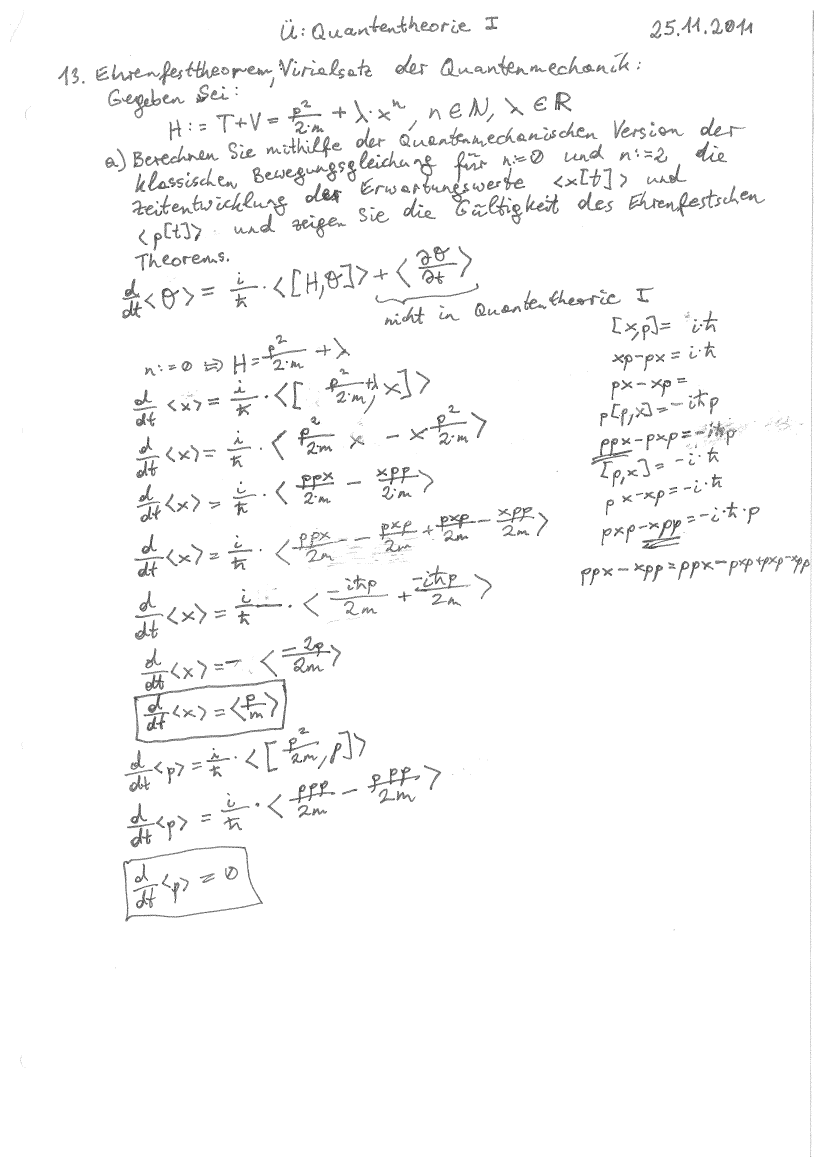 Ü: Quantentheorie I 25.11.2011
13. Ehrenfesttheorem, Virialsatz der Quantenmechanik:
Gegeben Sei:
H := T+V = p²/2·m + λ·xⁿ, n ∈ N, λ ∈ R
a) Berechnen Sie mithilfe der Quantenmechanischen Version der
klassischen Bewegungsgleichung für n:=0 und n:=2 die
Zeitentwicklung der Erwartungswerte <x[t]> und
<p[t]> und zeigen Sie die Gültigkeit des Ehrenfestschen
Theorems.
d/dt <θ> = i/ħ · <[H,θ]> + <∂θ/∂t>
nicht in Quantentheorie I
n:=0 ⇒ H = p²/2·m + λ
d/dt <x> = i/ħ · <[p²/2·m + λ, x]>
d/dt <x> = i/ħ · <p²/2·m x - x p²/2·m>
d/dt <x> = i/ħ · <ppx/2·m - xpp/2·m>
d/dt <x> = i/ħ · <ppx/2m - pxp/2m + pxp/2m - xpp/2m>
d/dt <x> = i/ħ · <-iħp/2m + -iħp/2m>
d/dt <x> = - <-2p/2m>
d/dt <x> = <p/m>
d/dt <p> = i/ħ · <[p²/2m, p]>
d/dt <p> = i/ħ · <ppp/2m - ppp/2m>
d/dt <p> = 0
[x,p] = i·ħ
xp-px = i·ħ
px-xp =
p[p,x] = -iħp
ppx-pxp = -iħp
[p,x] = -i·ħ
px-xp = -i·ħ
pxp-xpp = -i·ħ·p
ppx-xpp = ppx-pxp+pxp-xpp